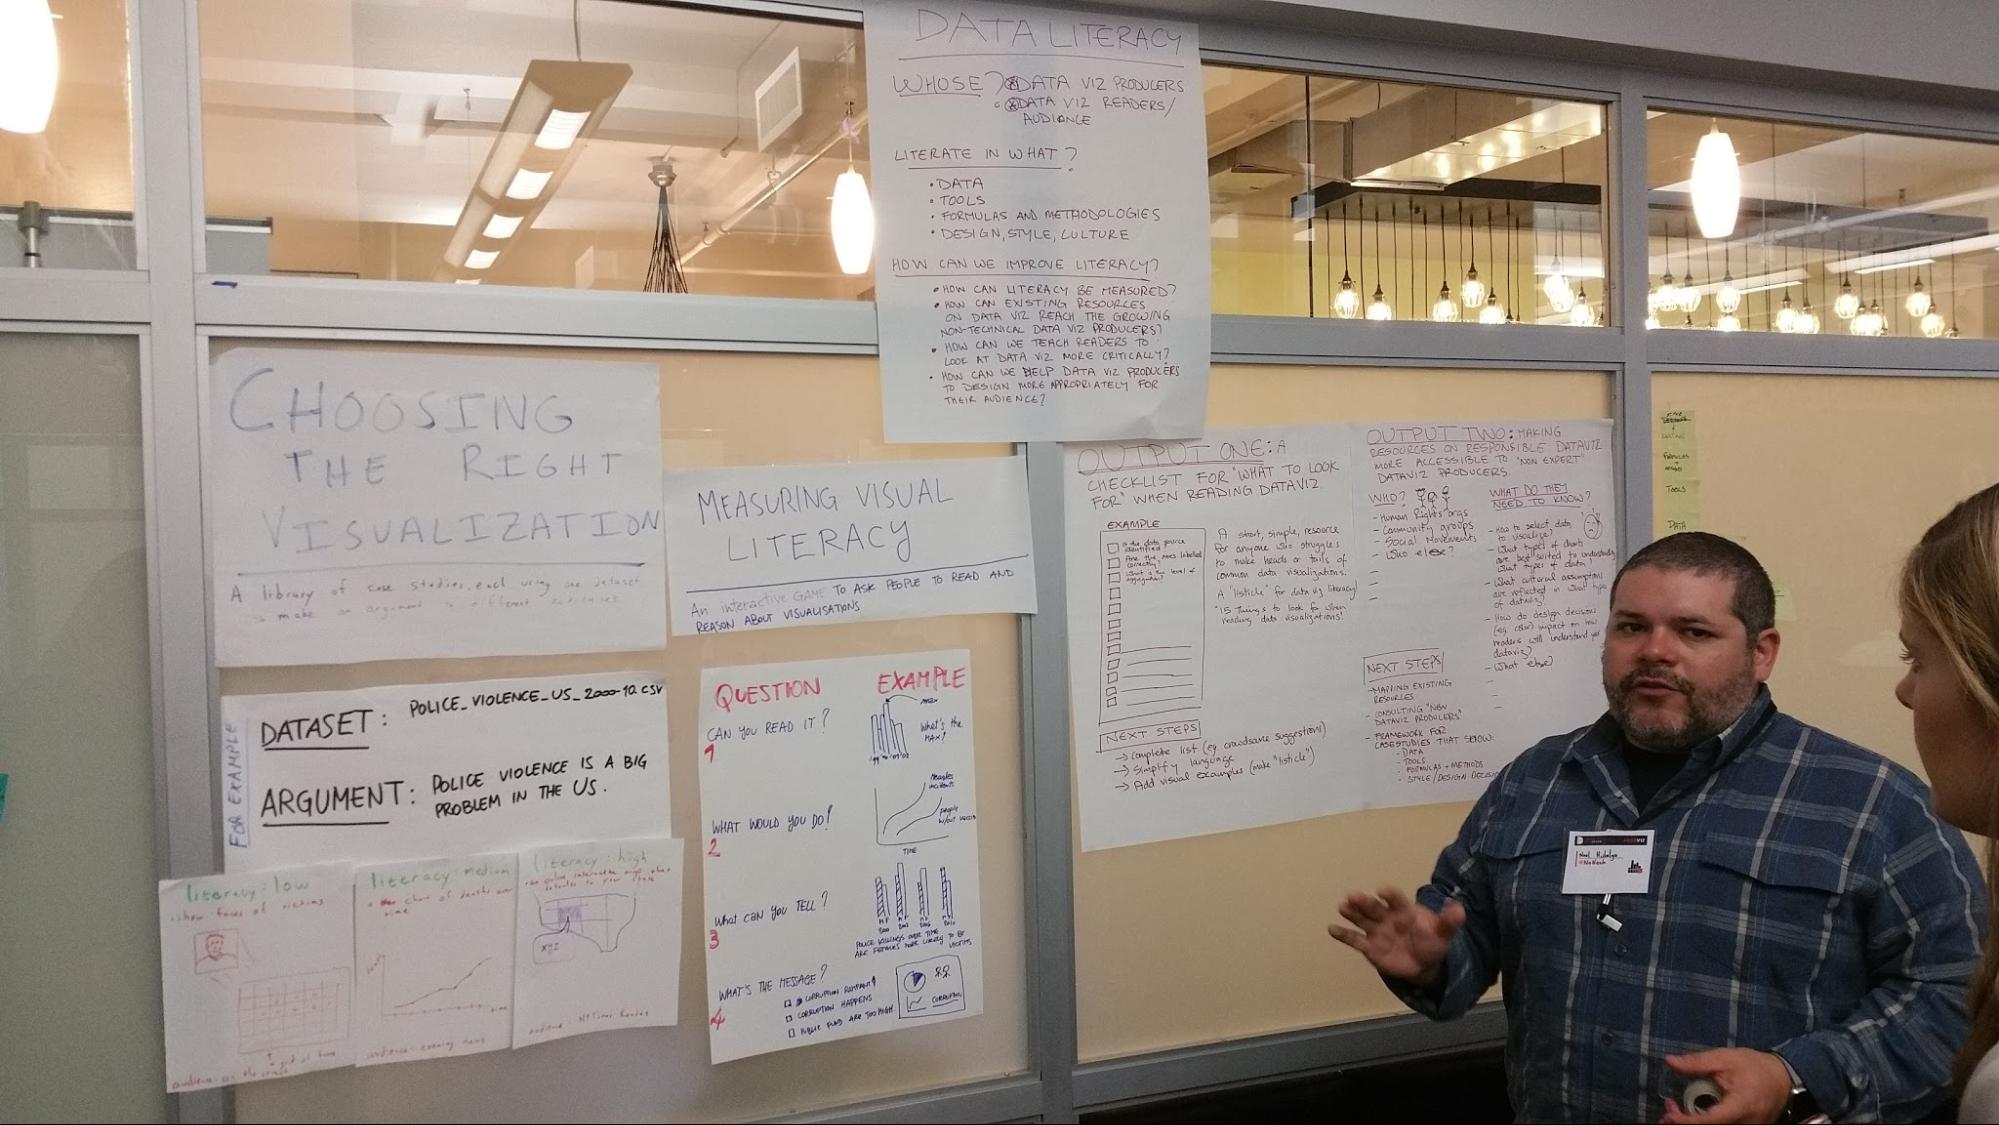 DATA LITERACY
WHOSE? DATA VIZ PRODUCERS
DATA VIZ READERS/
AUDIANCE
LITERATE IN WHAT?
• DATA
• TOOLS
• FORMULAS AND METHODOLOGIES
• DESIGN, STYLE, CULTURE
HOW CAN WE IMPROVE LITERACY?
• HOW CAN LITERACY BE MEASURED?
• HOW CAN EXISTING RESOURCES
ON DATA VIZ REACH THE GROWING
NON-TECHNICAL DATA VIZ PRODUCERS?
• HOW CAN WE TEACH READERS TO
LOOK AT DATA VIZ MORE CRITICALLY?
• HOW CAN WE HELP DATA VIZ PRODUCERS
TO DESIGN MORE APPROPRIATELY FOR
THEIR AUDIENCE?
CHOOSING
THE RIGHT
VISUALIZATION
A library of case studies, each using one dataset
make an argument to different audiences
FOR EXAMPLE
DATASET: POLICE_VIOLENCE_US_2000-10.CSV
ARGUMENT: POLICE VIOLENCE IS A BIG
PROBLEM IN THE US.
literacy: low
show faces of victims
literacy: medium
chart of deaths over
time
time
audience: evening news
literacy: high
XYZ
audience: NYTimes Reader
MEASURING VISUAL
LITERACY
An interactive GAME TO ASK PEOPLE TO READ AND
REASON ABOUT VISUALISATIONS
QUESTION EXAMPLE
CAN YOU READ IT?
1
What's the
MAX?
WHAT WOULD YOU DO?
2
Measles
incidents
people
TIME
What CAN YOU TELL?
3
POLICE KILLINGS OVER TIME
ARE FEMALES MORE LIKELY TO BE
VICTIMS
WHAT'S THE MESSAGE?
4
CORRUPTION RAMPANT
CORRUPTION HAPPENS
PUBLIC FUND ARE TOO HIGH
CORRUPTION
OUTPUT ONE: A
CHECKLIST FOR "WHAT TO LOOK
FOR" WHEN READING DATAVIZ
EXAMPLE
Is the data source
identified?
Are the axes labeled
correctly?
What is the level of
aggregation?
A short, simple, resource
for anyone who struggles
to make heads or tails of
common data visualizations.
A "listicle" for data viz literacy!
"15 Things to look for when
reading data visualizations!
NEXT STEPS
→ Complete list (eg crowdsource suggestions)
→ Simplify language
→ Add visual examples (make "listicle")
OUTPUT TWO: MAKING
RESOURCES ON RESPONSIBLE DATAVIZ
MORE ACCESSIBLE TO "NON EXPERT"
DATAVIZ PRODUCERS.
WHO?
- Human Rights orgs
- Community groups
- Social Movements
- Who else?
WHAT DO THEY
NEED TO KNOW?
- How to select data
to visualize?
- What types of charts
are best suited to understand
what types of data?
- What cultural assumptions
are reflected in what types
of dataviz?
- How do design decisions
(eg color) impact on how
readers will understand your
dataviz?
- What else?
NEXT STEPS
- MAPPING EXISTING
RESOURCES
- CONSULTING "NON
DATAVIZ PRODUCERS"
- FRAMEWORK FOR
CASESTUDIES THAT SHOW:
- DATA
- TOOLS
- FORMULAS + METHODS
- STYLE/DESIGN
TOOLS
DATA
Noel Hidalgo